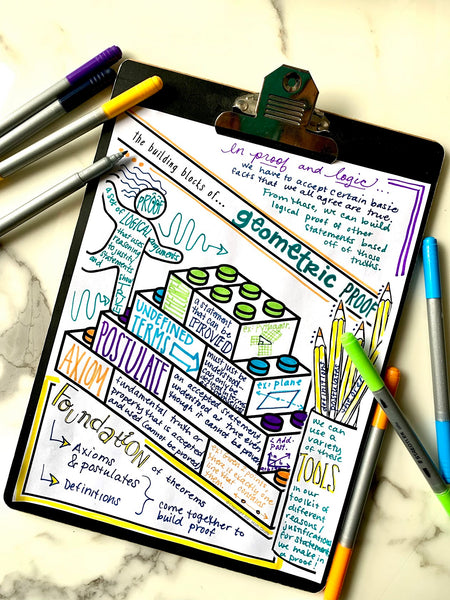 in proof and logic...
we have to accept certain basic
facts that we all agree are true.
From these, we can build
logical proof of other
statements based
off of those
truths.
the building blocks of...
geometric PROOF
PROOF
a set of LOGICAL arguments
that uses
reasoning
to justify
statements
a statement
that can be
(IM)PROVED
UNDEFINED
TERMS
must just be
understood
POSTULATE
an accepted statement
understood as true even
though it cannot be proven
AXIOM
fundamental truth or
property that is accepted
and used (cannot be proved)
ex: plane
Add.
post.
FOUNDATION
of theorems
Axioms
& postulates
Definitions
come together to
build proof
we can
use a
variety
of these
TOOLS
in our
toolkit of
different
reasons/
justifications
for statements
we make in
a proof!